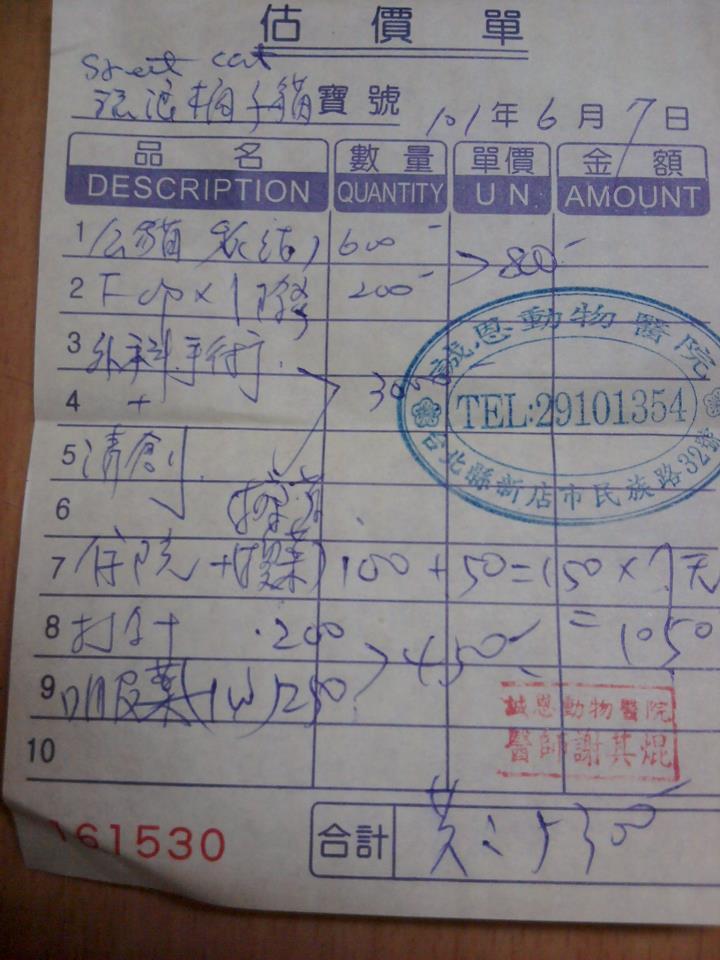 估價單
Street cat
流浪橘子貓寶號 101年6月7日
品名 數量 單價 金額
DESCRIPTION QUANTITY U N AMOUNT
1 公貓 紮(結) 600
2 × 1 200 > 800
3 外科手術 3000
4 +
5 清創
6
7 住院 + (換藥) 100 + 50 = 150 × 7天
8 打針 200 = 1050
9 口服藥 (1W) 250 > 450
10
誠恩動物醫院
TEL:29101354
台北縣新店市民族路32號
誠恩動物醫院
醫師謝其焜
61530
合計 共: 5300